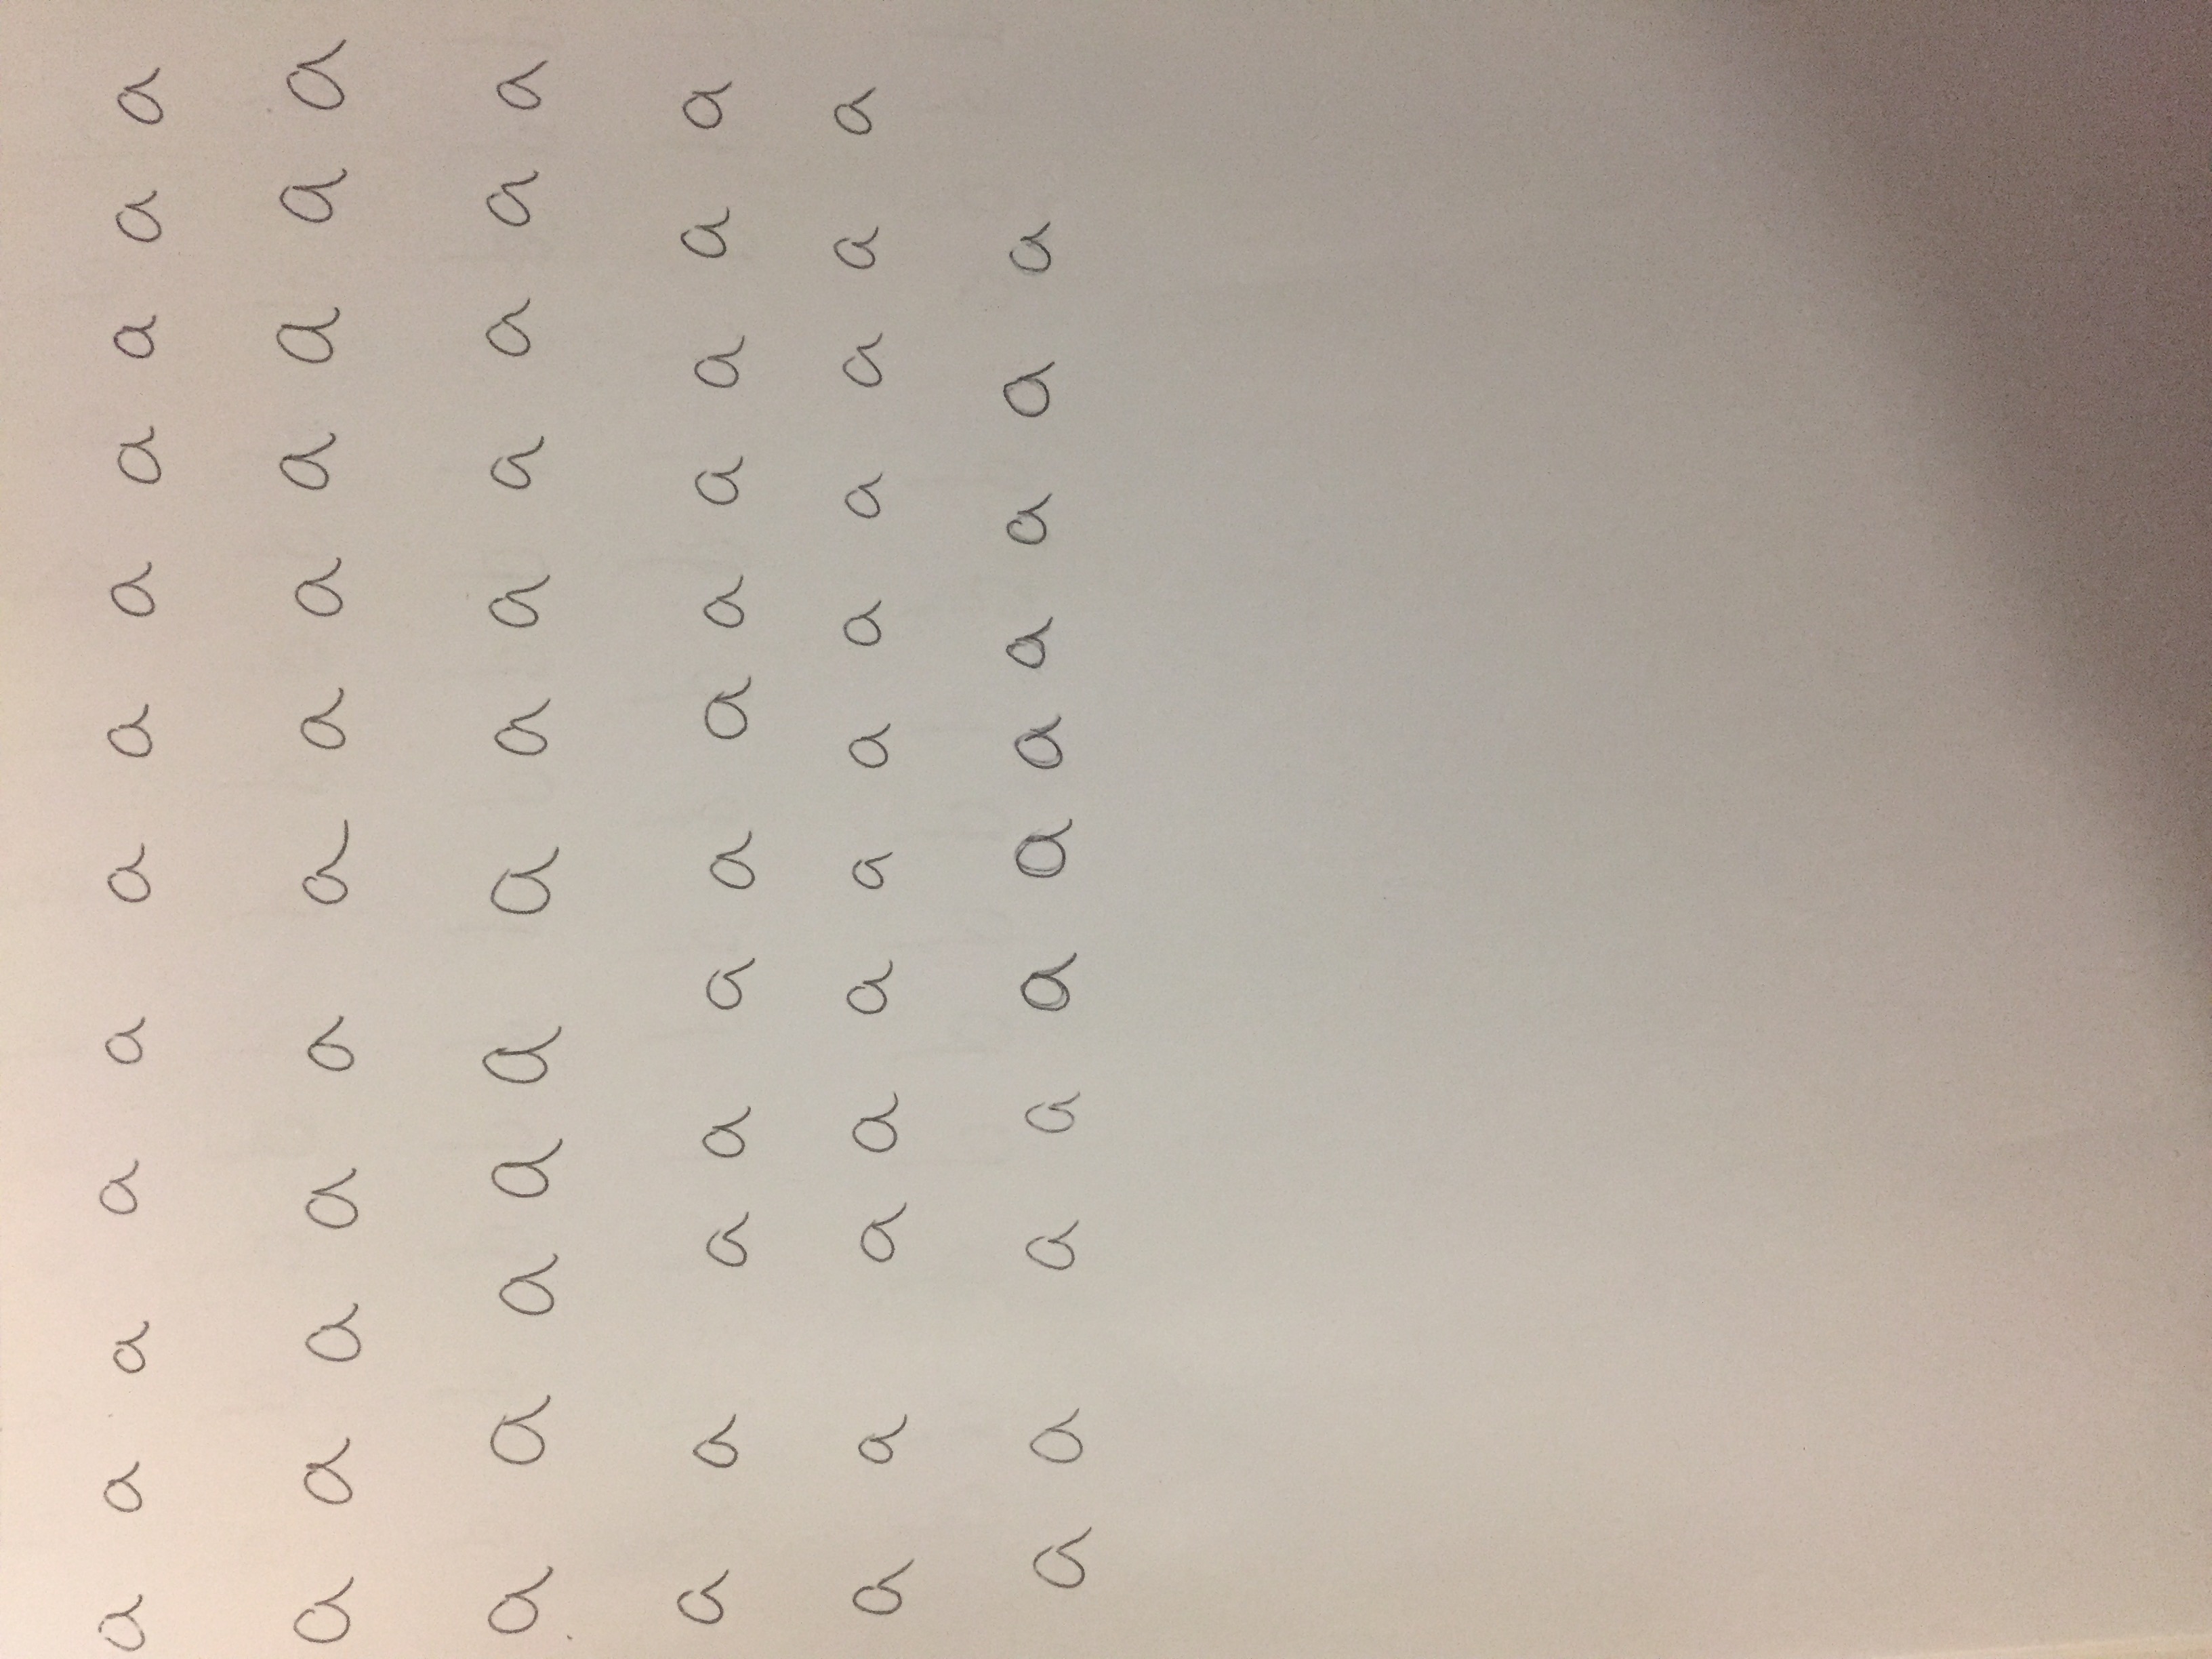 a a a a a a a a a a a a
a a a a a a a a a a a a
a a a a a a a a a a a a
a a a a a a a a a a a a
a a a a a a a a a a a a
a a a a a a a a a a a